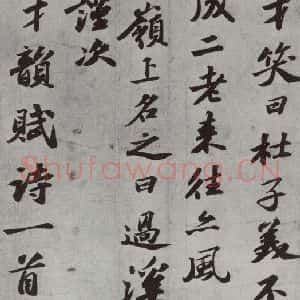 才笑曰杜子美不
成二老来往亦風
嶺上名之曰過溪
謹次
才韻賦詩一首
Shufawang.CN